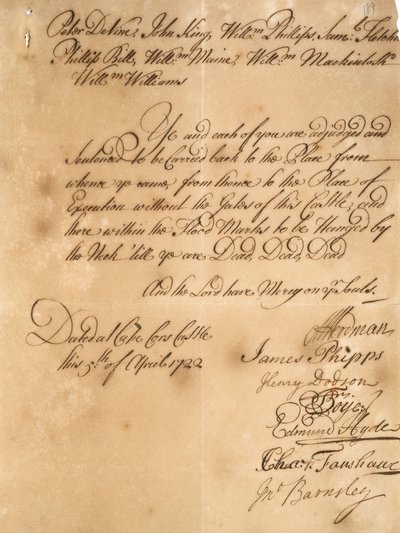 189
Peter DeVine, John King, Will^m Phillips, Sam^l Fletcher
Phillip Bill, Will^m Maine, Will^m Mackintosh
Will^m Williams
Ye and each of you are adjudged and
Sentenced to be Carried back to the Place from
whence ye came, from thence to the Place of
Execution without the Gates of this Castle, and
there within the Flood Marks to be Hanged by
the Neck 'till ye are Dead, Dead, Dead
And the Lord have Mercy on y^r Souls.
Dated at Cabo Cors Castle
this 5^th of April 1722
Herdman
James Phipps
Henry Dodson
Boye
Edmund Hyde
Cha^s Fanshaw
Jn^o Barnsley